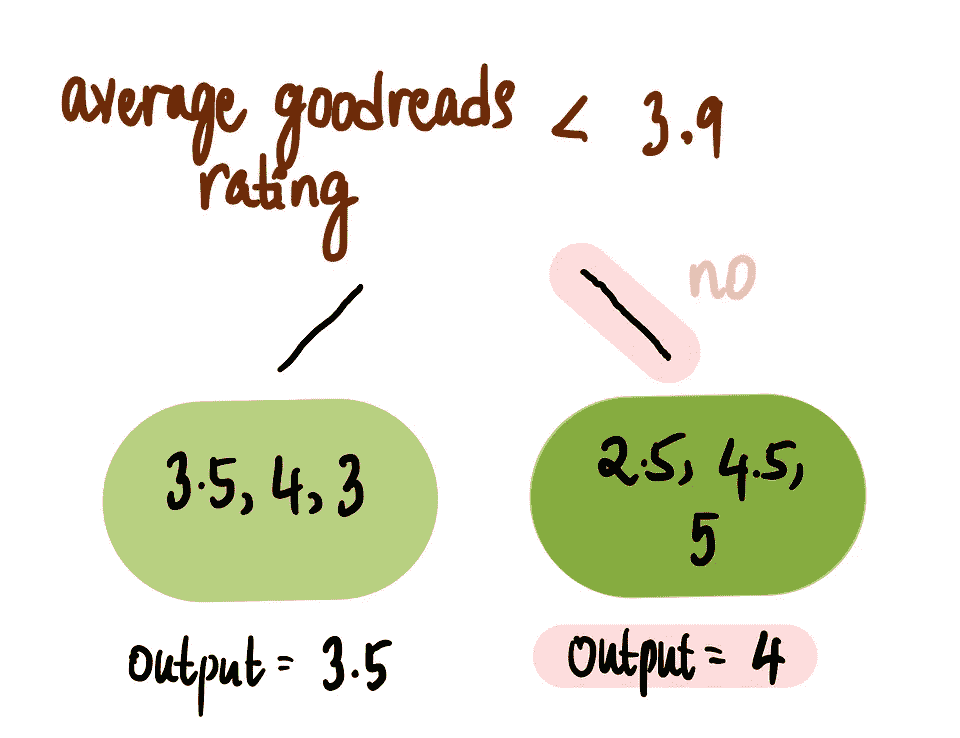 average goodreads < 3.9
rating
no
3.5, 4, 3
2.5, 4.5,
5
output = 3.5
output = 4